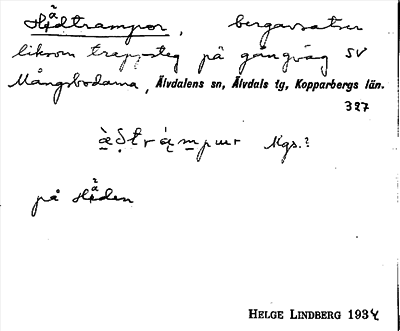 Hädtrampor, bergavsatser
liksom trappsteg på gångväg SV
Mångsbodarna, Älvdalens sn, Älvdals tg, Kopparbergs län.
327
Mgs.?
på Häden
HELGE LINDBERG 1934